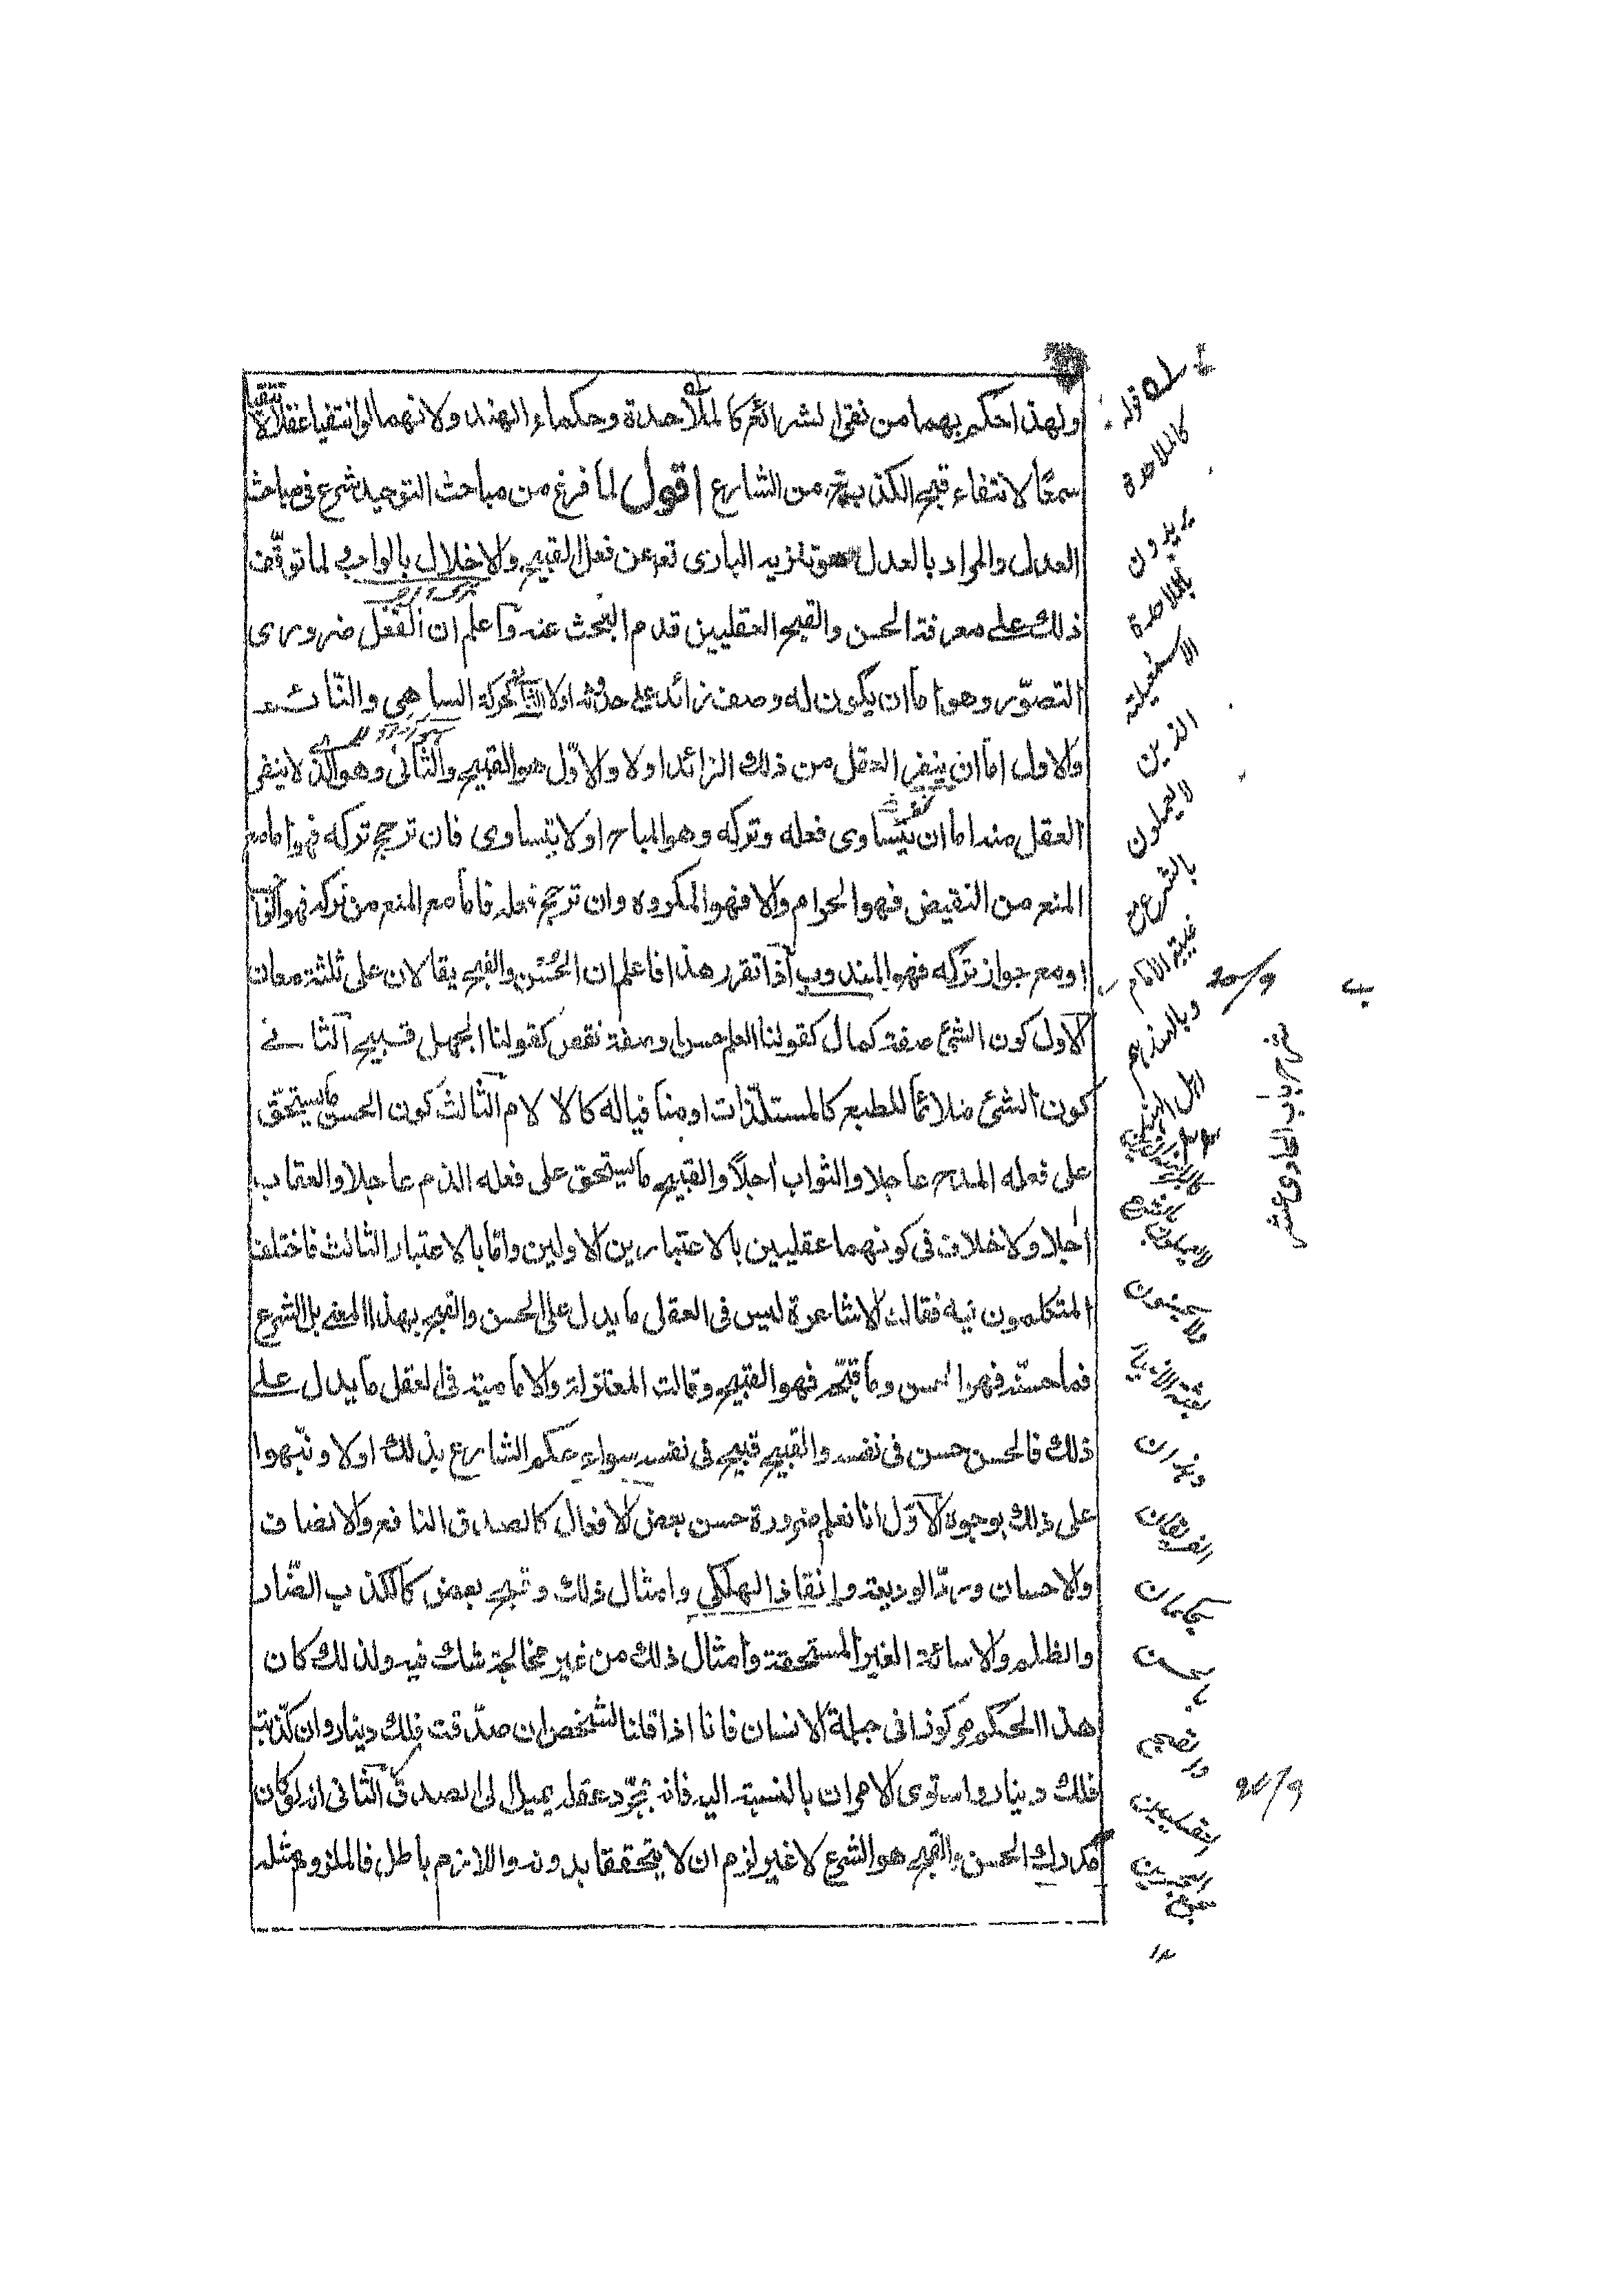 ولهذا حكم بهما من نفى الشرائع كالملاحدة وحكماء الهند ولانهما لو انتفيا عقلا لانتفيا
سمعًا لانتفاء قبح الكذب ح من الشارع اقول لما فرغ من مباحث التوحيد شرع فى مباحث
العدل والمراد بالعدل هو تنزيه البارى تعه عن فعل القبيح والاخلال بالواجب لما توقّف
ذلك على معرفة الحسن والقبح العقليين قدم البحث عنه واعلم ان الفعل ضرورى
التصوّر وهو اما ان يكون له وصف زائد على حدوثه اولا الثانى كحركة الساهى والنّائم
والاول امّا ان ينفر العقل من ذلك الزائد اولا والاوّل هو القبيح والثّانى وهو الذى لا ينفر
العقل منه اما ان يتساوى فعله وتركه وهو المباح اولا يتساوى فان ترجح تركه فهو اما مع
المنع من النقيض فهو الحرام والا فهو المكروه وان ترجح فعله فاما مع المنع من تركه فهو الواجب
او مع جواز تركه فهو المندوب اذا تقرر هذا فاعلم ان الحُسْن والقبح يقالان على ثلثة معان
الاول كون الشئ صفة كمال كقولنا العلم حسن او صفة نقص كقولنا الجهل قبيح الثانے
كون الشئ ملائمًا للطبع كالمستلذّات او منافيا له كالالام الثالث كون الحسن ما يستحق
على فعله المدح عاجلا والثواب اٰجلًا والقبيح ما يستحق على فعله الذم عاجلا والعقاب
اٰجلا ولا خلاف فى كونهما عقليين بالاعتبارين الاولين وامّا بالاعتبار الثالث فاختلف
المتكلمون فيه فقالت الاشاعرة ليس فى العقل ما يدل على الحسن والقبح بهذا المعنى بل الشرع
فما حسنّه فهو الحسن وما قبّحه فهو القبيح وقالت المعتزلة والامامية فى العقل ما يدل على
ذلك فالحسن حسن فى نفسه والقبيح قبيح فى نفسه سواء حكم الشارع بذلك اولا ونبّهوا
على ذلك بوجوه الاوّل انا نعلم ضرورة حسن بعض الافعال كالصدق النافع والانصاف
والاحسان وردّ الوديعة وانقاذ الهلكى وامثال ذلك وقبح بعض كالكذب الضّار
والظلم والاساءة الغير المستحقة وامثال ذلك من غير مخالجة شك فيه ولذلك كان
هذا الحكم مركوزا فى جبلة الانسان فانا اذا قلنا لشخص ان صدّقت فلك دينار وان كذّبت
فلك دينار واستوى الامران بالنسبة اليه فانه بمجّرد عقله يميل الى الصدق الثانى انه لو كان
مدرك الحسن والقبح هو الشرع لا غير لزم ان لا يتحققا بدونه واللازم باطل فالملزوم مثله
قوله
كالملاحدة
يريدون
بالملاحدة
الاسمعيلية
الذين
لا يعملون
بالشرع فى
غيبة الامام
وبالهند هم
اهل الهند
ب
شرح باب الحادى عشر